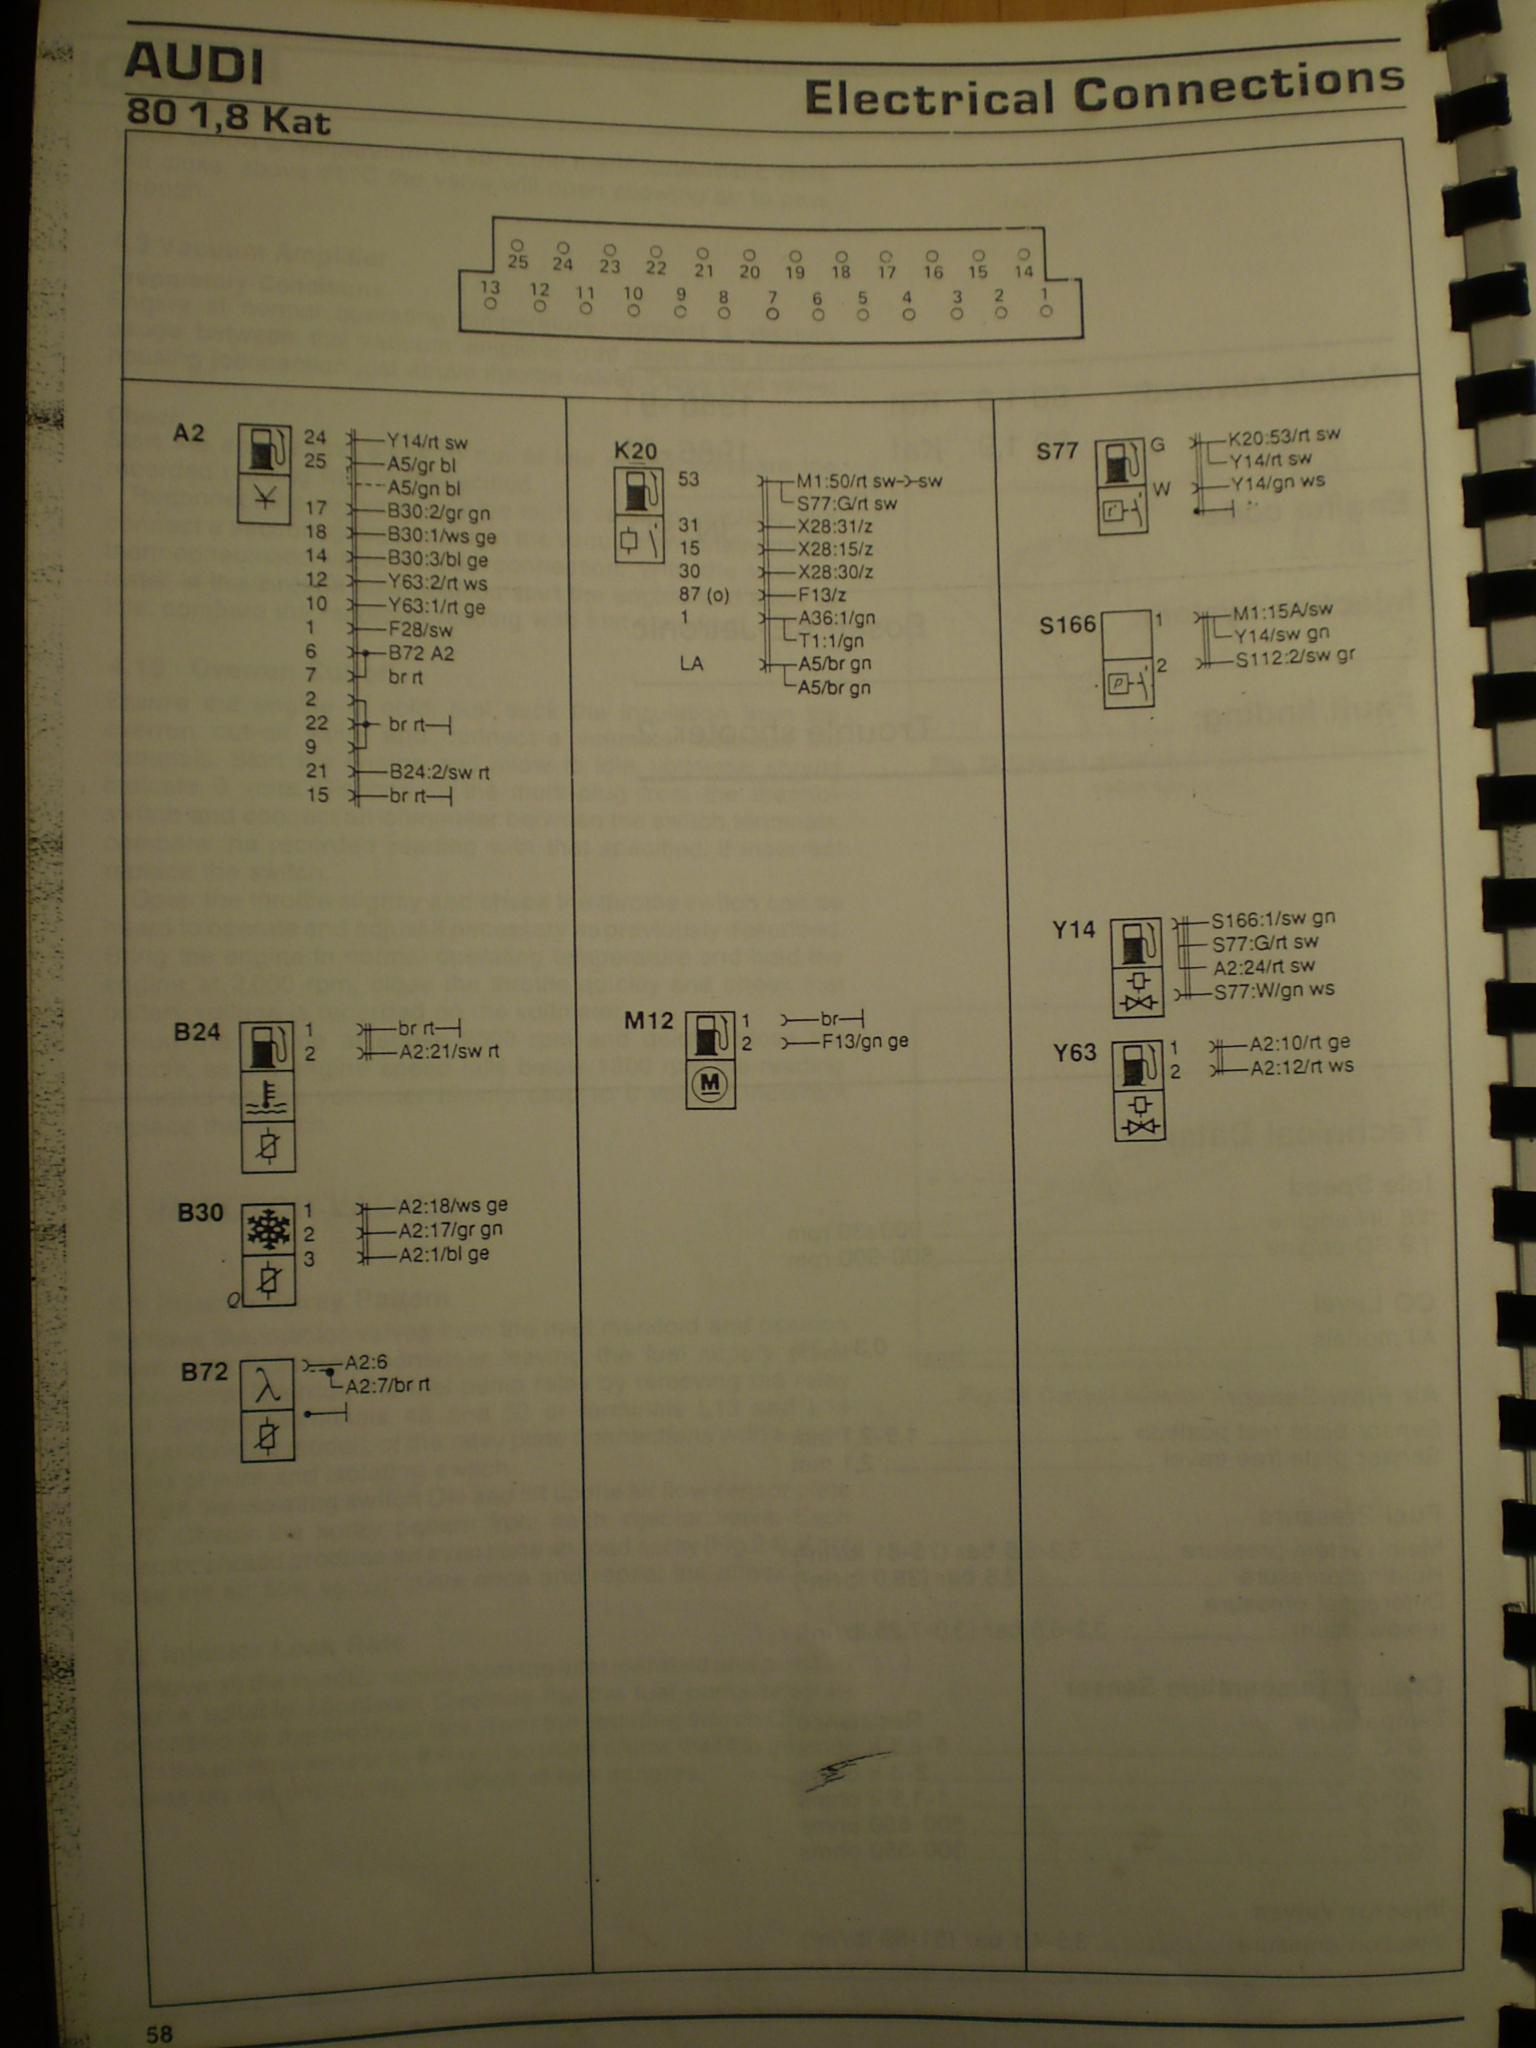 AUDI
80 1,8 Kat
Electrical Connections
25 24 23 22 21 20 19 18 17 16 15 14
13 12 11 10 9 8 7 6 5 4 3 2 1
A2
24 Y14/rt sw
25 A5/gr bl
A5/gn bl
17 B30:2/gr gn
18 B30:1/ws ge
14 B30:3/bl ge
12 Y63:2/rt ws
10 Y63:1/rt ge
1 F28/sw
6 B72 A2
7 br rt
2
22 br rt
9
21 B24:2/sw rt
15 br rt
B24
1 br rt
2 A2:21/sw rt
B30
1 A2:18/ws ge
2 A2:17/gr gn
3 A2:1/bl ge
Q
B72
λ
A2:6
A2:7/br rt
K20
53 M1:50/rt sw sw
S77:G/rt sw
31 X28:31/z
15 X28:15/z
30 X28:30/z
87 (o) F13/z
1 A36:1/gn
T1:1/gn
LA A5/br gn
A5/br gn
M12
1 br
2 F13/gn ge
M
S77
G K20:53/rt sw
Y14/rt sw
W Y14/gn ws
S166
1 M1:15A/sw
Y14/sw gn
2 S112:2/sw gr
P
Y14
S166:1/sw gn
S77:G/rt sw
A2:24/rt sw
S77:W/gn ws
Y63
1 A2:10/rt ge
2 A2:12/rt ws
58